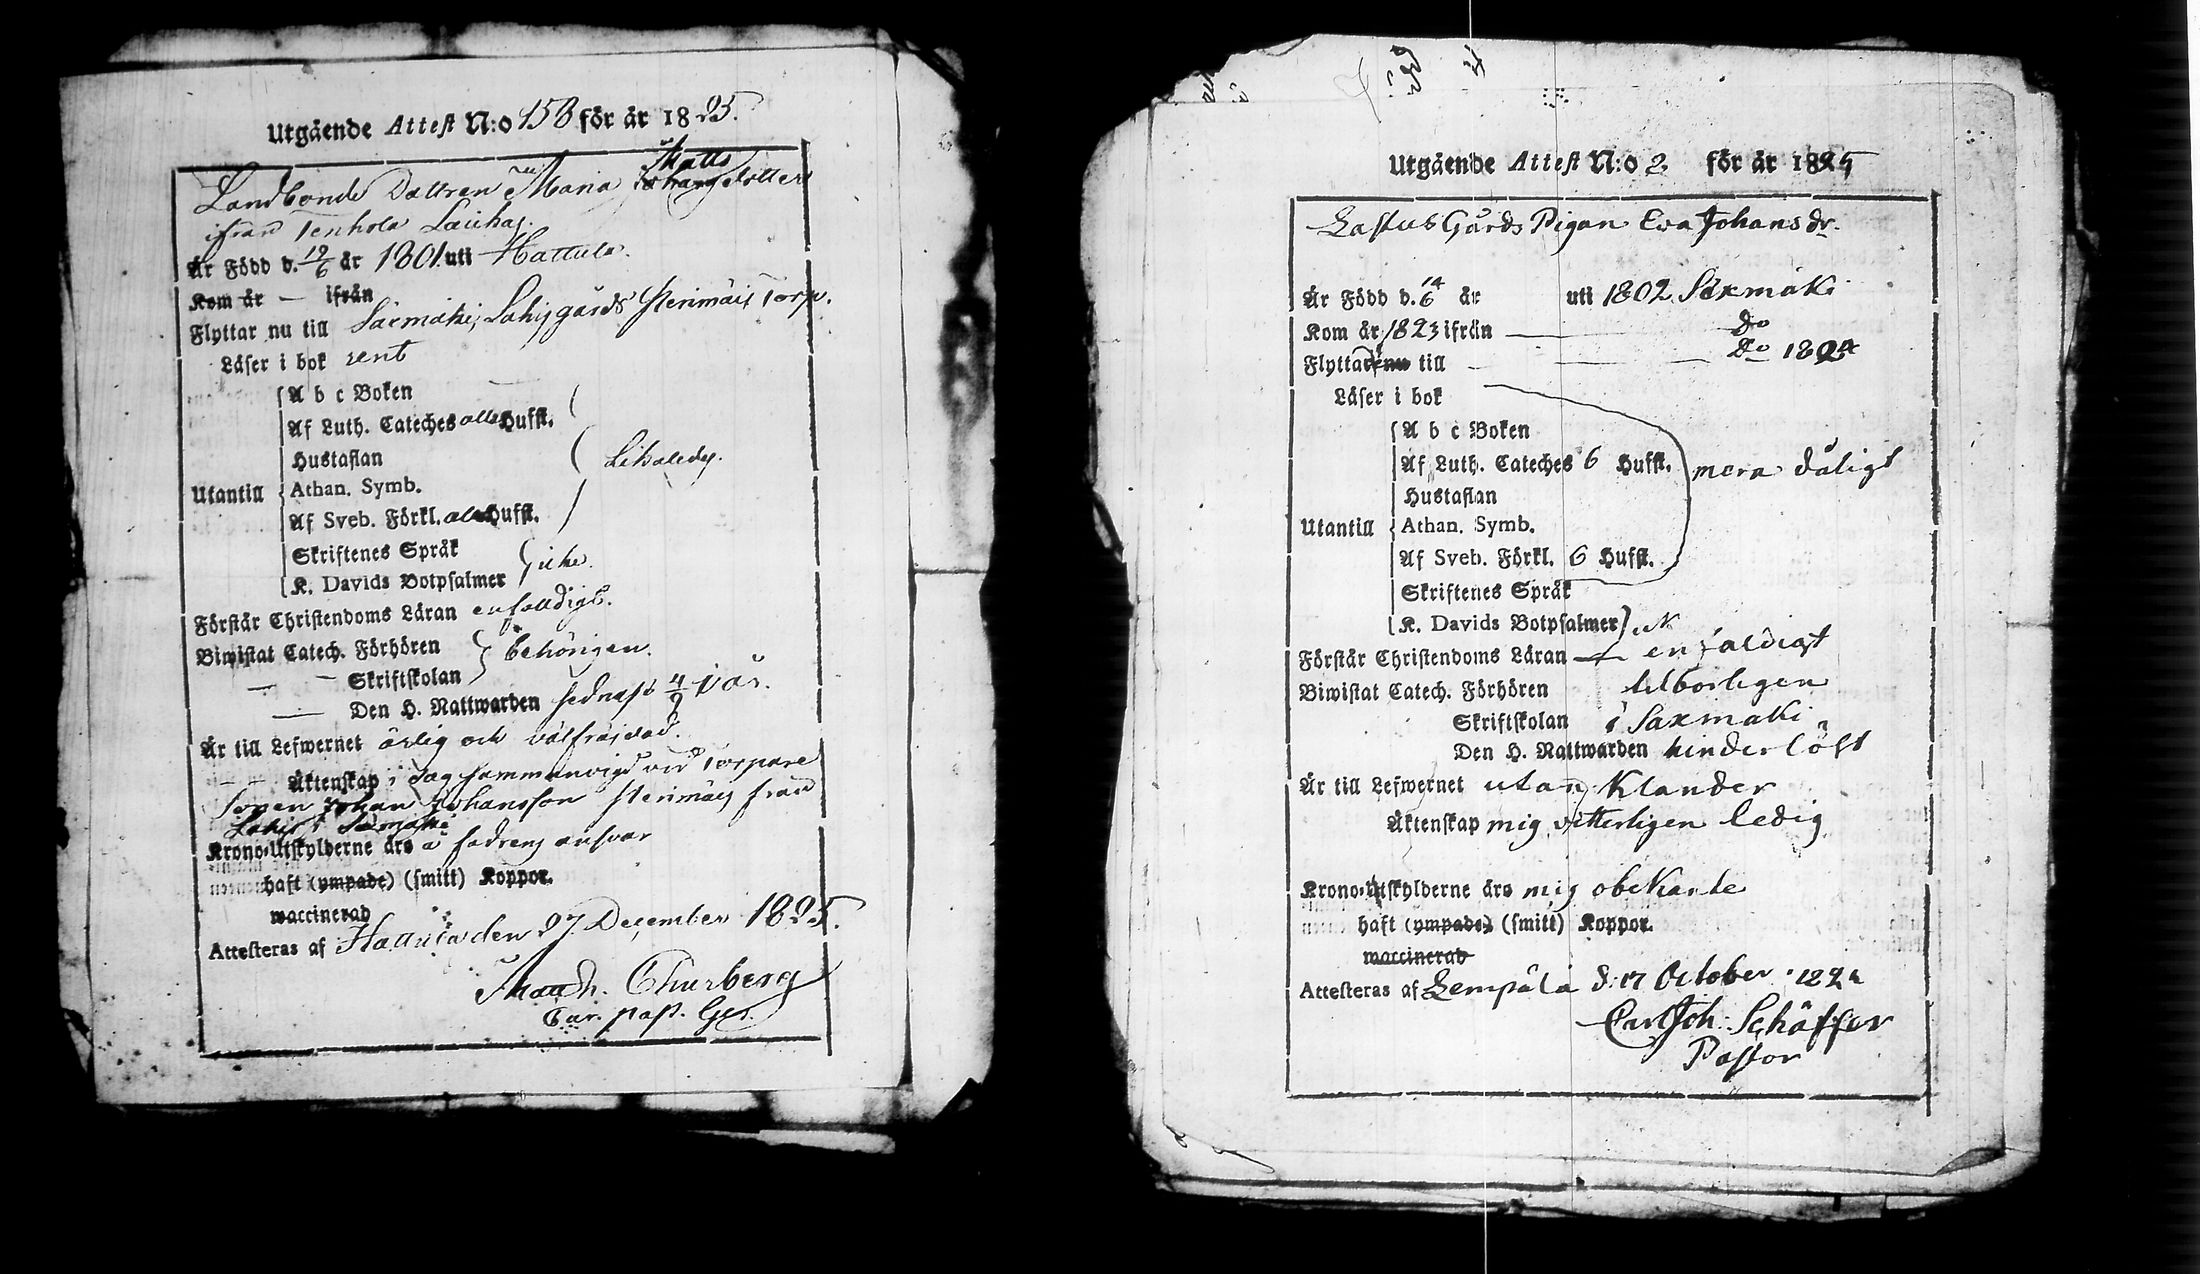 Utgående Attest N:o 158 för år 1825.
Matts
Landbonde Dottren Maria Johansdotter
ifrån Tenhola Lauhas.
Är Född d. 19/6 år 1801 uti Hattula.
Kom år — ifrån
Flyttar nu till Säxmäki, Lahis gårds Stenimäis Torp.
Läser i bok rent
A b c Boken
Af Luth. Cateches alla Hufst.
Hustaflan
Likaledes.
Utantill
Athan. Symb.
Af Sveb. Förkl. alla Hufst.
Skriftenes Språk
K. Davids Botpsalmer
icke.
Förstår Christendoms Läran enfalldigt.
Biwistat Catech. Förhören
behörigen.
— — Skriftskolan
— Den H. Nattwarden sednast 4/9 i år.
Är till Lefwernet ärlig och välfräjdad.
— — Äktenskap i dag sammanvigd vid Torpare
Sonen Johan Johansson Stenimäis från
Lahis i Säxmäki
Krono-Utskylderne äro å fadrens ansvar
haft (ympade) (smitt) Koppor.
waccinerad
Attesteras af Hattula den 27 December 1825.
Matth. Churberg
Utgående Attest N:o 2 för år 1825
Lastus Gårds Pigan Eva Johans dr.
Är Född d. 14/6 år uti 1802 Säxmäki
Kom år 1823 ifrån — do
Flyttade nu till — do 1824
Läser i bok
A b c Boken
Af Luth. Cateches 6 Hufst.
mera dåligt
Hustaflan
Utantill
Athan. Symb.
Af Sveb. Förkl. 6 Hufst.
Skriftenes Språk
K. Davids Botpsalmer
Förstår Christendoms Läran — enfaldigt
Biwistat Catech. Förhören tilborligen
Skriftskolan i Saxmäki
Den H. Nattwarden hinderlöst
Är till Lefwernet utan Klander
Äktenskap mig vitterligen ledig
Krono-Utskylderne äro mig obekante
haft (ympade) (smitt) Koppor.
waccinerad
Attesteras af Lempälä d. 17 October 1824
Carl Joh. Schäffer
Pastor